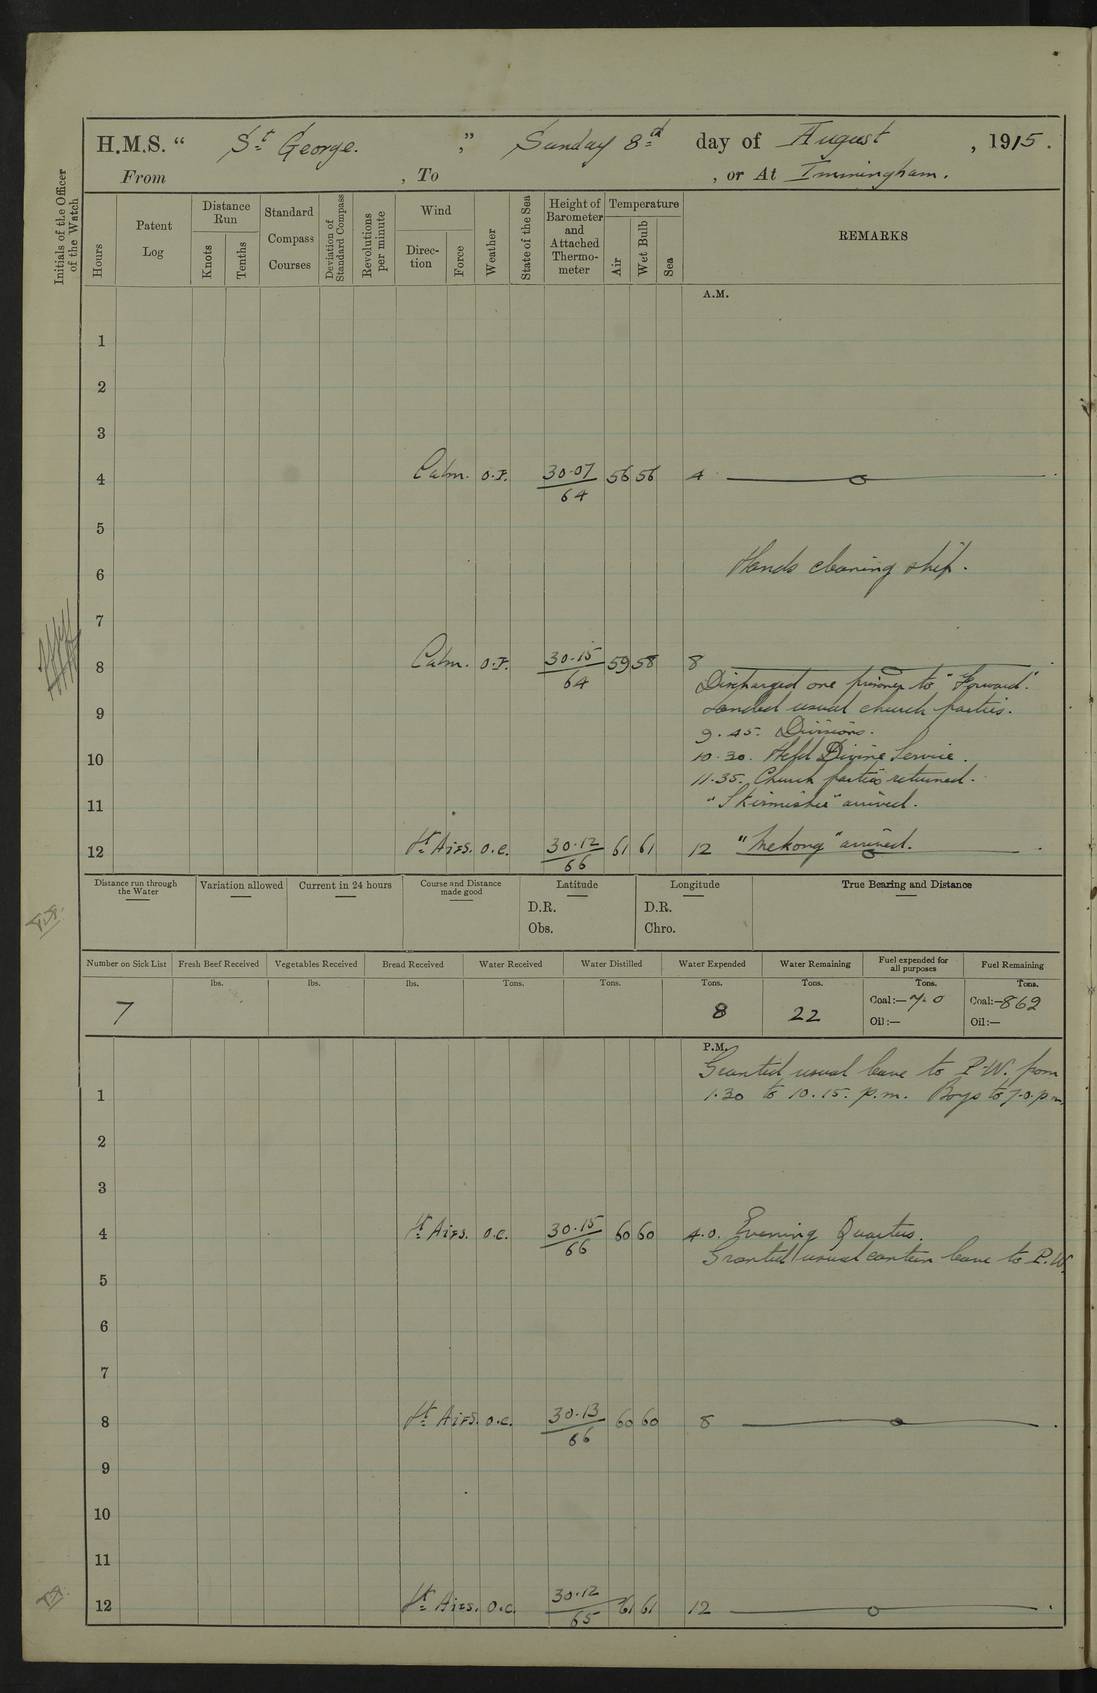 H.M.S. “ St George. ,” Sunday 8th day of August , 1915.
From , To , or At Immingham.
Initials of the Officer of the Watch
Hours
Patent Log
Distance Run
Knots
Tenths
Standard Compass Courses
Deviation of Standard Compass
Revolutions per minute
Wind
Direction
Force
Weather
State of the Sea
Height of Barometer and Attached Thermo-meter
Temperature
Air
Wet Bulb
Sea
REMARKS
A.M.
1
2
3
4 Calm. o.F. 30.07 / 64 56 56 4
5
6 Hands cleaning ship.
7
8 Calm. o.F. 30.15 / 64 59 58 8
Discharged one prisoner to "Forward".
9 Landed usual church parties.
9.45. Divisions.
10 10.30. Held Divine Service.
11.35. Church parties returned.
11 "Skirmisher" arrived.
12 Lt Airs. o.c. 30.12 / 66 61 61 12 "Mekong" arrived.
Distance run through the Water
Variation allowed
Current in 24 hours
Course and Distance made good
Latitude
D.R.
Obs.
Longitude
D.R.
Chro.
True Bearing and Distance
Number on Sick List Fresh Beef Received Vegetables Received Bread Received Water Received Water Distilled Water Expended Water Remaining Fuel expended for all purposes Fuel Remaining
lbs. lbs. lbs. Tons. Tons. Tons. Tons. Tons. Tons.
7 8 22 Coal:— 7.0 Coal:— 862
Oil:— Oil:—
P.M.
Granted usual leave to P.W. from
1 1.30 to 10.15. p.m. Boys to 7.0. p.m.
2
3
4 Lt Airs. o.c. 30.15 / 66 60 60 4.0. Evening Quarters.
Granted usual canteen leave to P.W.
5
6
7
8 Lt Airs. o.c. 30.13 / 66 60 60 8
9
10
11
12 Lt Airs. o.c. 30.12 / 65 61 61 12